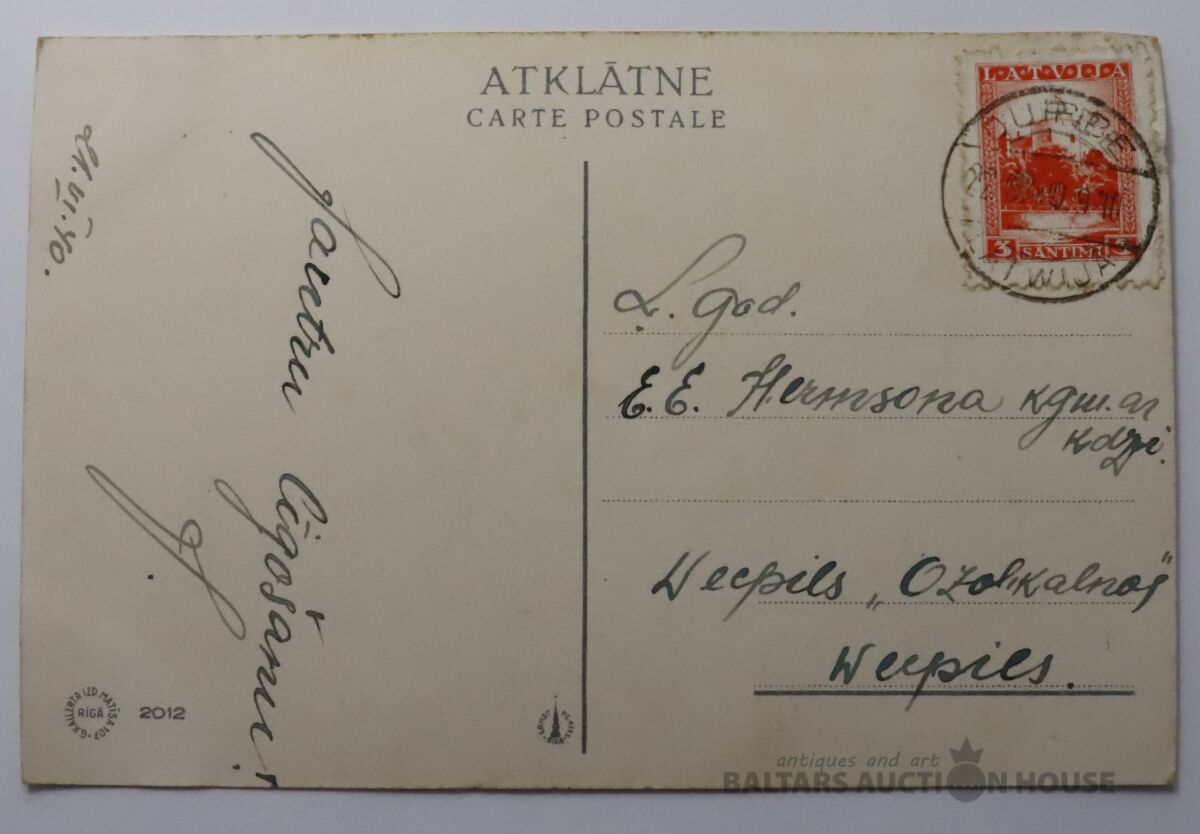 ATKLĀTNE
CARTE POSTALE
21.VI.40.
Jautru
līgošanu!
LATVIJA
3 SANTIMI 3
L. god.
E.E. Hermsona kgm. ar
kdzi.
Wecpils „Ozolkalnos"
Wecpils.
G.KALLERTA IZD. MATĪSA 107.
RĪGĀ
2012
ERNST PLATES RIGA
antiques and art
BALTARS AUCTION HOUSE